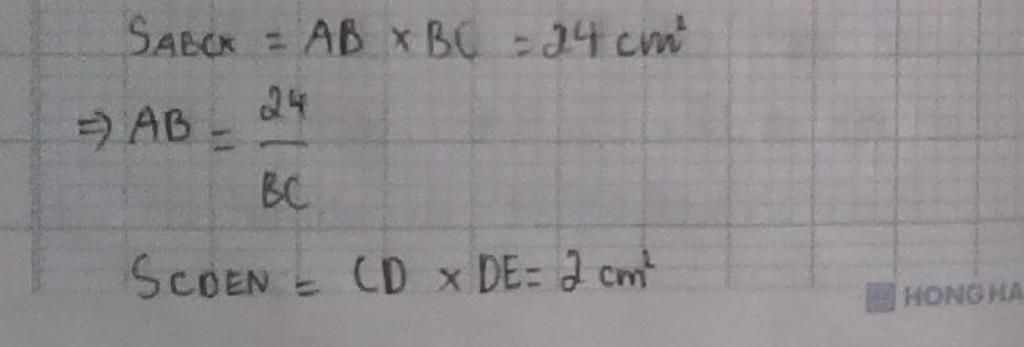 SABCX = AB × BC = 24 cm²
⇒ AB = 24
BC
SCDEN = CD × DE = 2 cm²
HONG HA